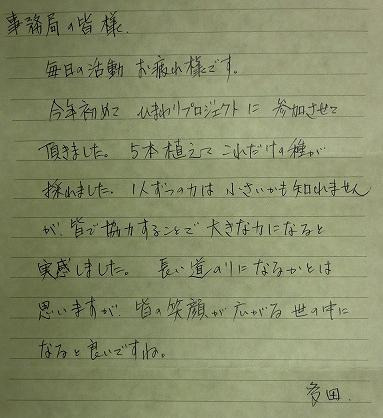 事務局の皆様.
毎日の活動 お疲れ様です。
今年初めて ひまわりプロジェクトに 参加させて
頂きました。 5本植えて これだけの種が
採れました。 1人ずつの力は 小さいかも知れません
が、皆で協力することで 大きな力になると
実感しました。 長い道のりになるかとは
思いますが、皆の笑顔が 広がる 世の中に
なると良いですね。
多田.